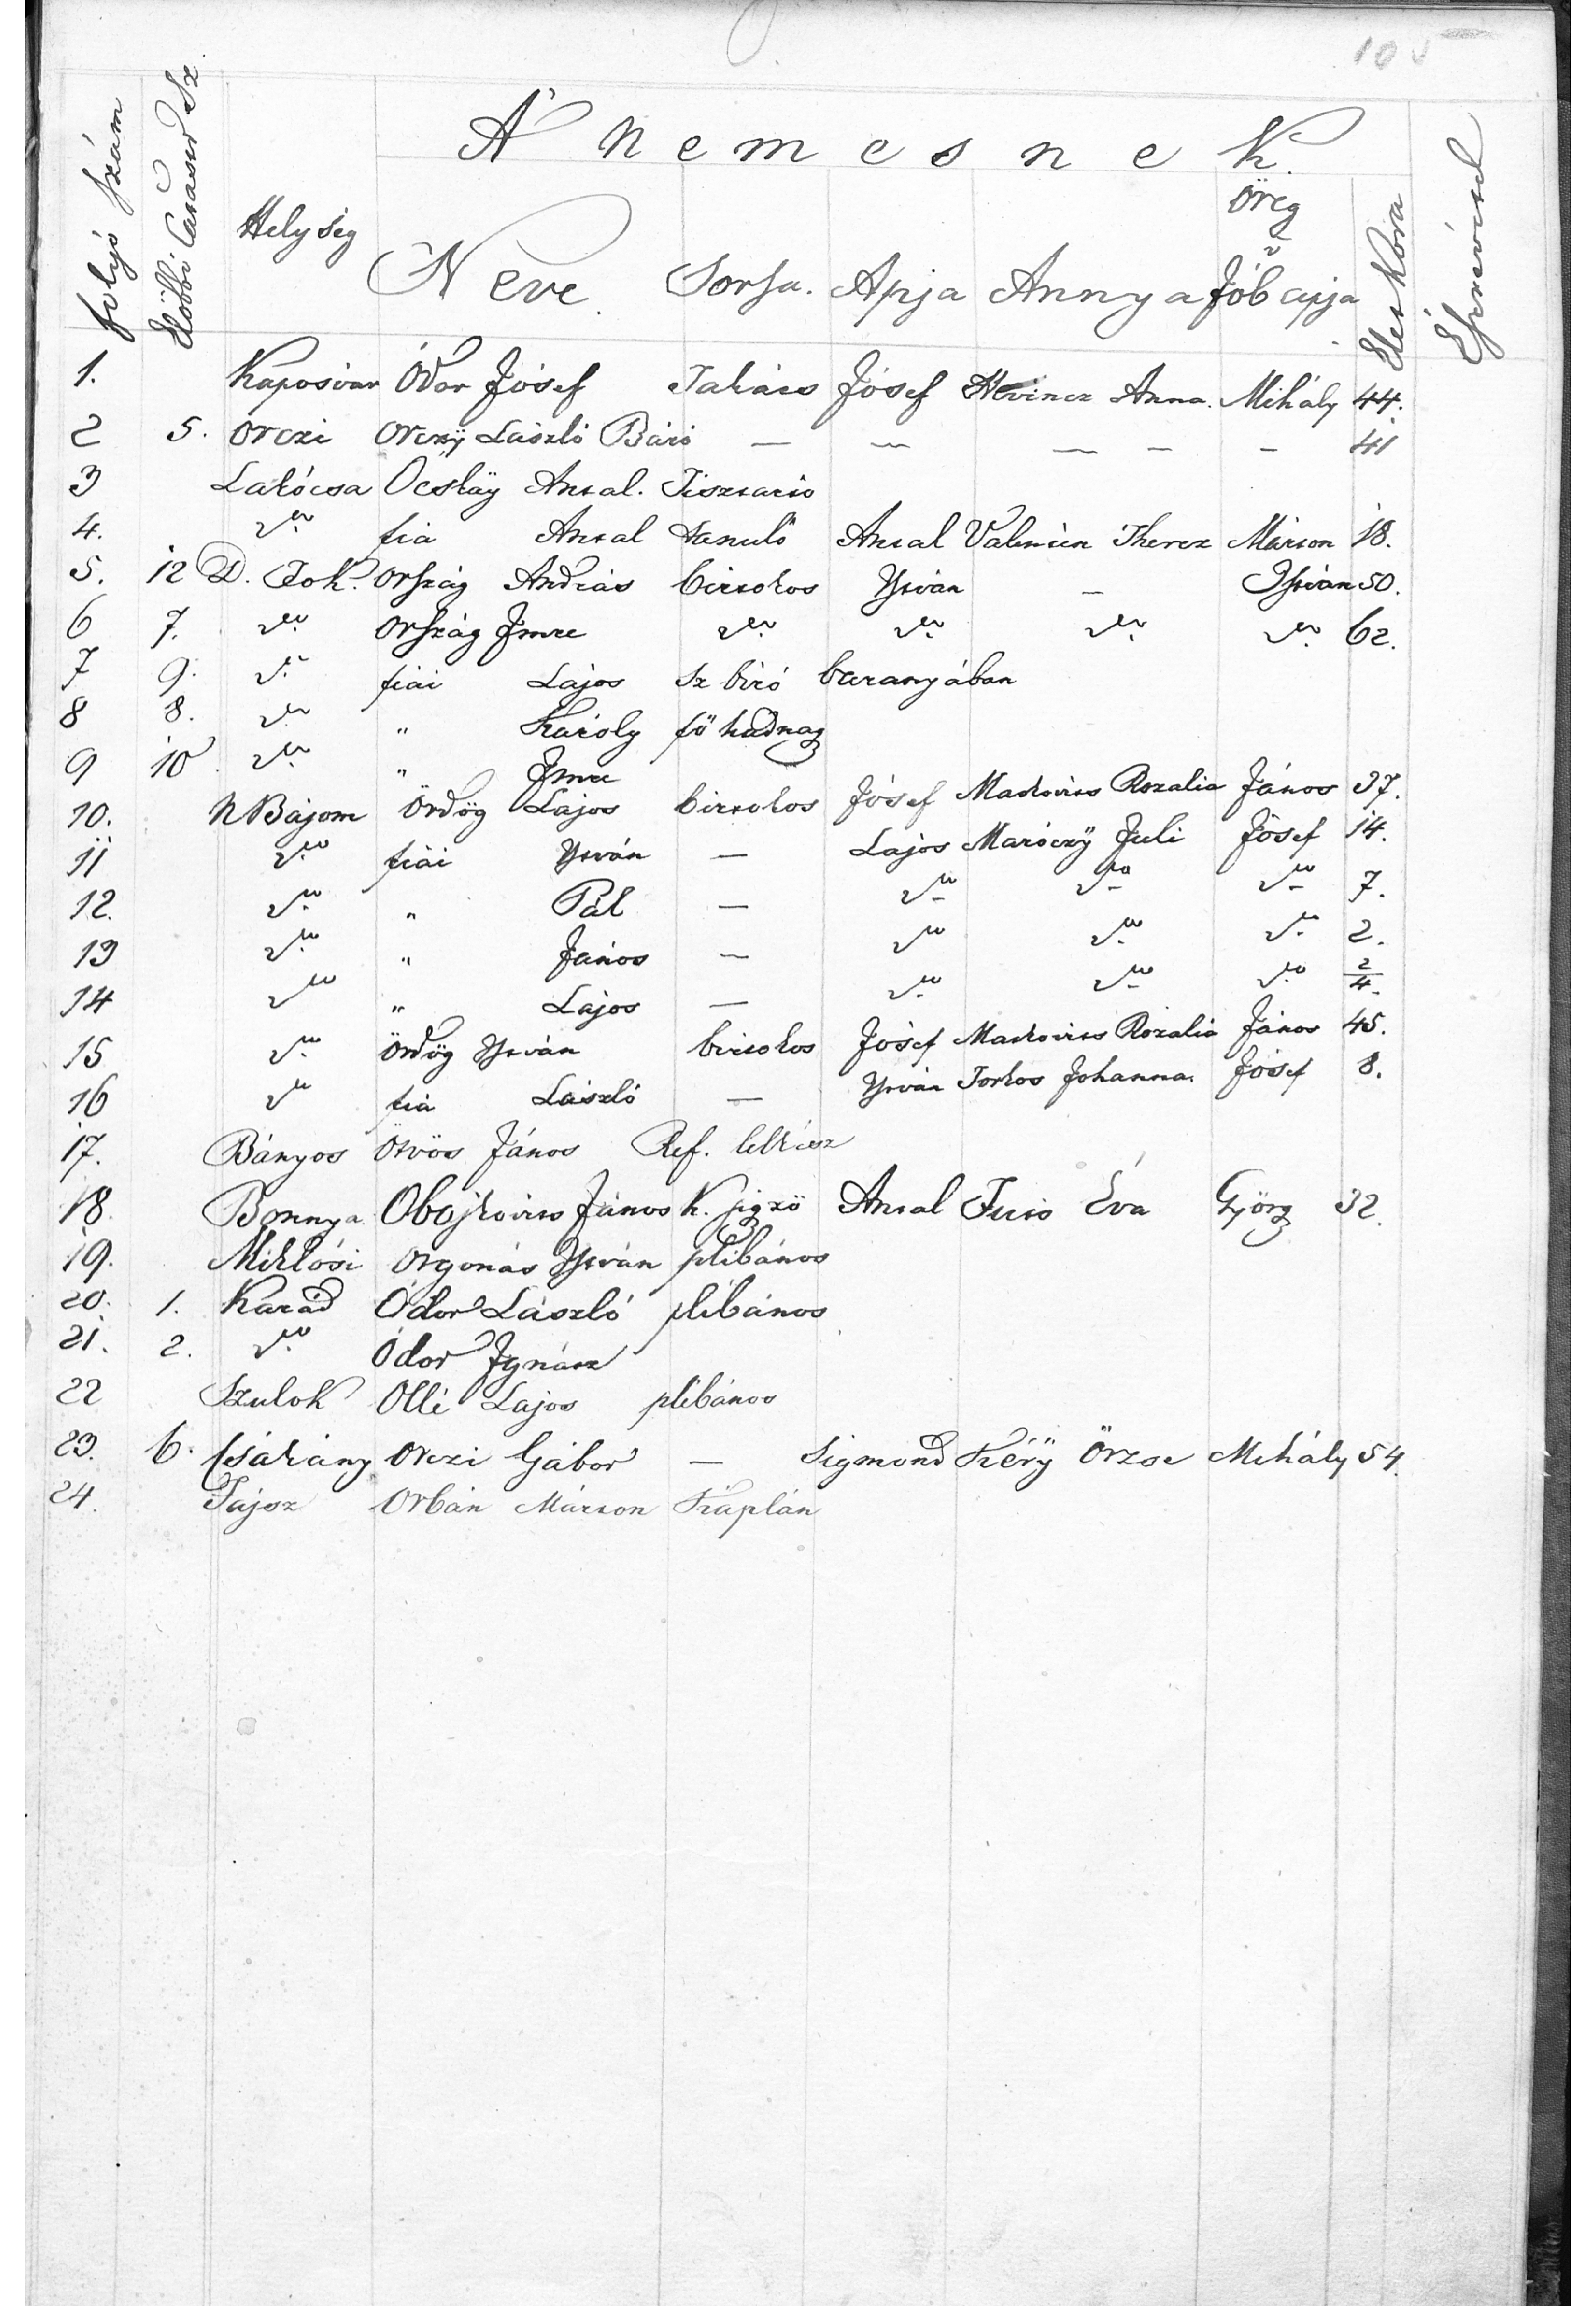 105
A' Nemesnek
folyó szám Előbbi Lasaur Sz. Helység Neve Sorsa. Apja Annya Öreg v Jób apja Élet Kora Észrevétel
1. Kaposvar Ódor Jósef Takács Jósef Anna. Mihály 44.
2 5. Orczi Orczÿ László Báró — — — — — 41
3 Lakócsa Ocskaÿ Antal. Tisztartó
4. do fia Antal tanuló Antal Valentin Therez Márton 18.
5. 12 D. Tok. Ország András birtokos Ystván — Ystván 50.
6 7. do Ország Jmre do do do do 62.
7 9. do fiai Lajos Sz biró baranyában
8 8. do " Károly fő hadnagy
9 10 do " Jmre
10. N Bajom Ördög Lajos birtokos Jósef Markovits Rozalia János 37.
11 do fiai Ystván — Lajos Maróczÿ Juli Jósef 14.
12. do " Pál — do do do 7.
13 do " János — do do do 2.
14 do " Lajos — do do do 2/4.
15 do Ördög Ystván birtokos Jósef Markovits Rozalia János 45.
16 do fia László — Ystván Torkos Johanna. Jósef 8.
17. Bányos Ötvös János Ref. lelkész
18. Bonnya Obojkovits János K. jegzö Antal Tuis Éva Györg 32.
19. Miklósi Orgonás Ystván plébános
20. 1. Karád Ódor László plébános
21. 2. do Ódor Jgnátz
22 Szulok Ollé Lajos plébános
23. 6. Csákány Orczi Gábor — Sigmond Kéry Örzse Mihály 54.
24. Tájsz Orbán Márton Káplán